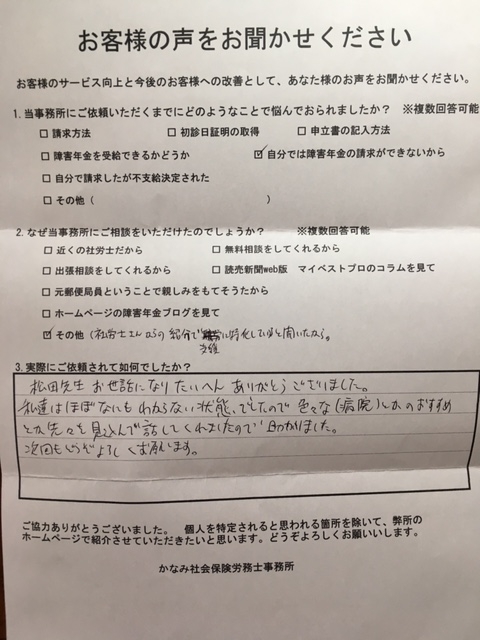 お客様の声をお聞かせください
お客様のサービス向上と今後のお客様への改善として、あなた様のお声をお聞かせください。
1. 当事務所にご依頼いただくまでにどのようなことで悩んでおられましたか？ ※複数回答可能
□ 請求方法 □ 初診日証明の取得 □ 申立書の記入方法
□ 障害年金を受給できるかどうか ☑ 自分では障害年金の請求ができないから
□ 自分で請求したが不支給決定された
□ その他（ ）
2. なぜ当事務所にご相談をいただけたのでしょうか？ ※複数回答可能
□ 近くの社労士だから □ 無料相談をしてくれるから
□ 出張相談をしてくれるから □ 読売新聞web版 マイベストプロのコラムを見て
□ 元郵便局員ということで親しみをもてそうだから
□ ホームページの障害年金ブログを見て
☑ その他（社労士さんからの紹介で に特化していると聞いたから。
3. 実際にご依頼されて如何でしたか？
松田先生 お世話になり たいへん ありがとうございました。
私達はほぼなにも わからない状態、でしたので 色々な(病院)とかのおすすめ
とか先々を見込んで話してくれましたので 助かりました。
次回もどうぞよろしくお願います。
ご協力ありがとうございました。 個人を特定されると思われる箇所を除いて、弊所の
ホームページで紹介させていただきたいと思います。どうぞよろしくお願いいします。
かなみ社会保険労務士事務所